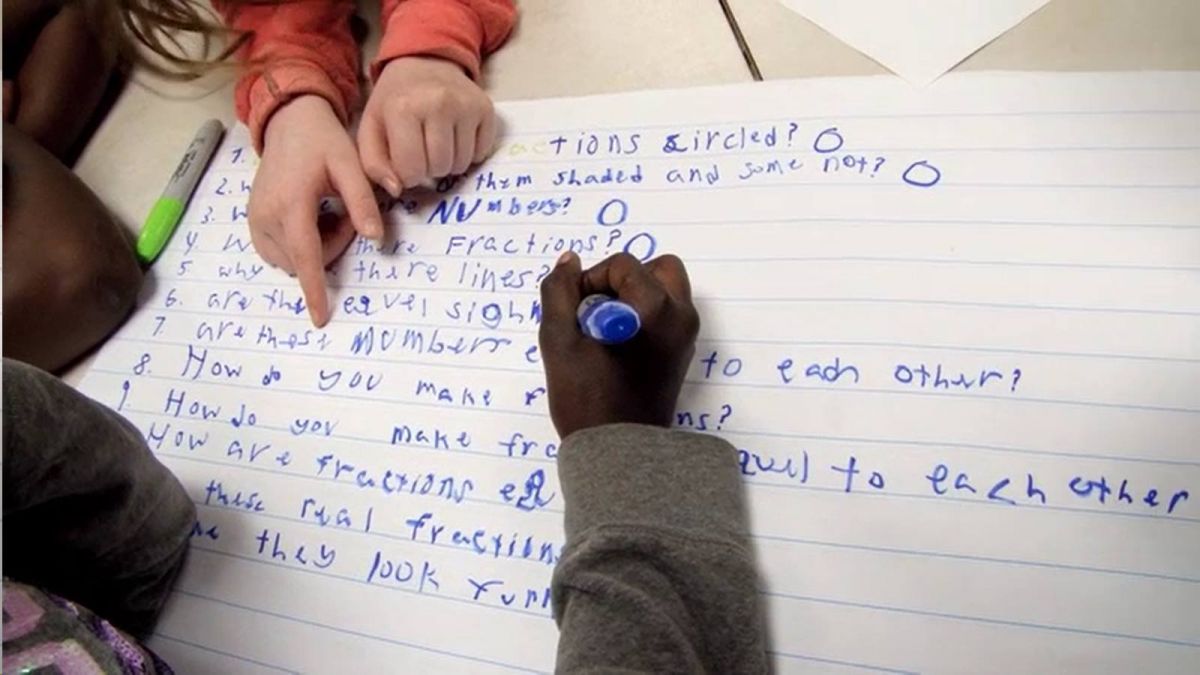 1. ctions circled? O
2. them shaded and some not? O
3. NUmbers? O
4. there Fractions? O
5 why there lines?
6. are the eqvel sighn
7. are these NUMBers to each other?
8. How do you make
9. How do you make fra ns?
How are fractions eq quel to each other
these real fractions
they look funn